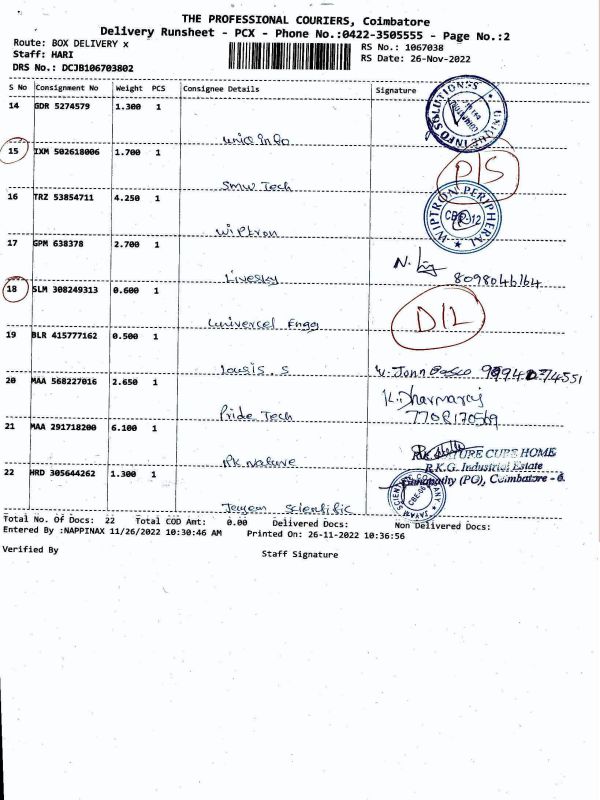 THE PROFESSIONAL COURIERS, Coimbatore
Delivery Runsheet - PCX - Phone No.:0422-3505555 - Page No.:2
Route: BOX DELIVERY x
RS No.: 1067038
Staff: HARI
RS Date: 26-Nov-2022
DRS No.: DCJB106703802
S No Consignment No Weight PCS Consignee Details Signature
14 GDR 5274579 1.300 1
UNIQUE INFO SOLUTIONS
Unic Info
15 IXM 502618006 1.700 1
D/S
SMW Tech
16 TRZ 53854711 4.250 1
WIPTRON PERIPHERAL
CBE-12
Wiptron
17 GPM 638378 2.700 1
Livesky
8098046164
18 SLM 308249313 0.600 1
D/L
Univercel Engg
19 BLR 415777162 0.500 1
Lousis. S
20 MAA 568227016 2.650 1
K. Dharmaraj
Pride Tech
21 MAA 291718200 6.100 1
CUBE HOME
R.K.G. Industrial Estate
RK Nature
(PO), Coimbatore - 6.
22 HRD 305644262 1.300 1
Jeyem Scientific
Total No. Of Docs: 22 Total COD Amt: 0.00 Delivered Docs: Non Delivered Docs:
Entered By :NAPPINAX 11/26/2022 10:30:46 AM Printed On: 26-11-2022 10:36:56
Verified By Staff Signature